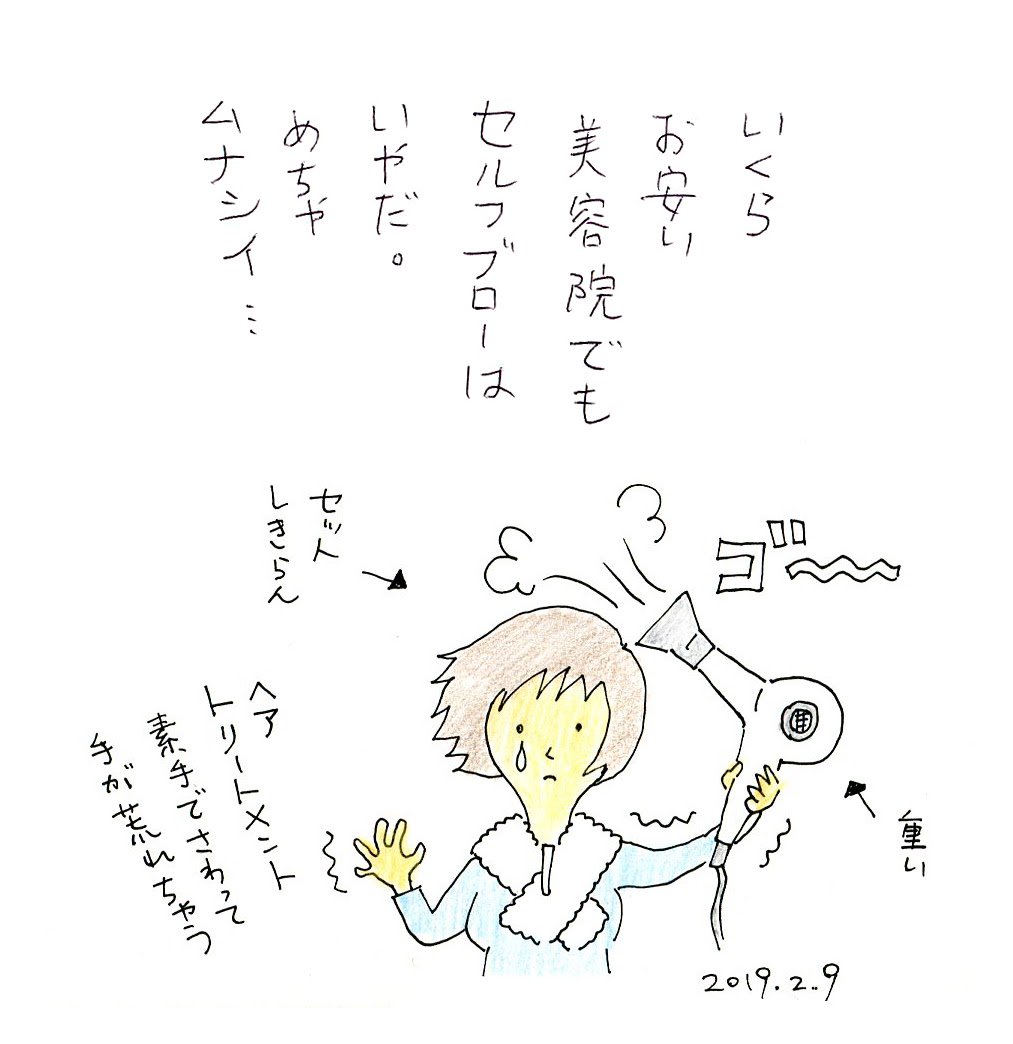 いくら
お安い
美容院でも
セルフブローは
いやだ。
めちゃ
ムナシイ…
ゴ゛〜
セット
しきらん
重い
ヘア
トリートメント
素手でさわって
手が荒れちゃう
2019.2.9